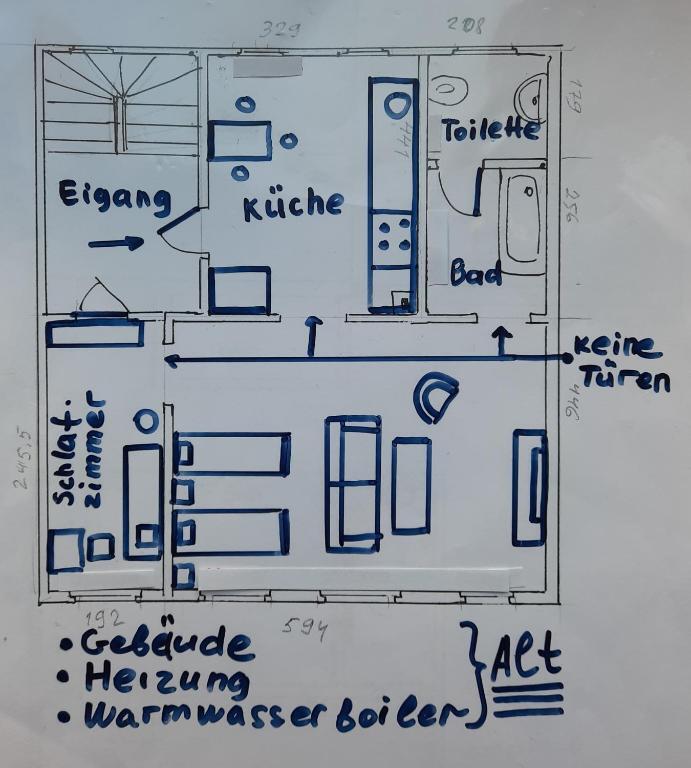 329
208
179
Toilette
441
Eigang
Küche
256
Bad
Keine
Türen
446
Schlaf.
zimmer
245,5
192
594
• Gebäude
• Heizung
• Warmwasserboiler
Alt